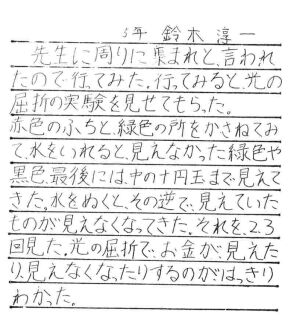 5年 鈴木淳一
先生に周りに集まれと、言われ
たので、行ってみた。行ってみると、光の
屈折の実験を見せてもらった。
赤色のふちと、緑色の所をかさねてみ
て、水をいれると、見えなかった緑色や
黒色、最後には、中の十円玉まで見えて
きた。水をぬくと、その逆で、見えていた
ものが見えなくなってきた。それを、2、3
回見た。光の屈折で、お金が、見えた
り、見えなくなったりするのがはっきり
わかった。